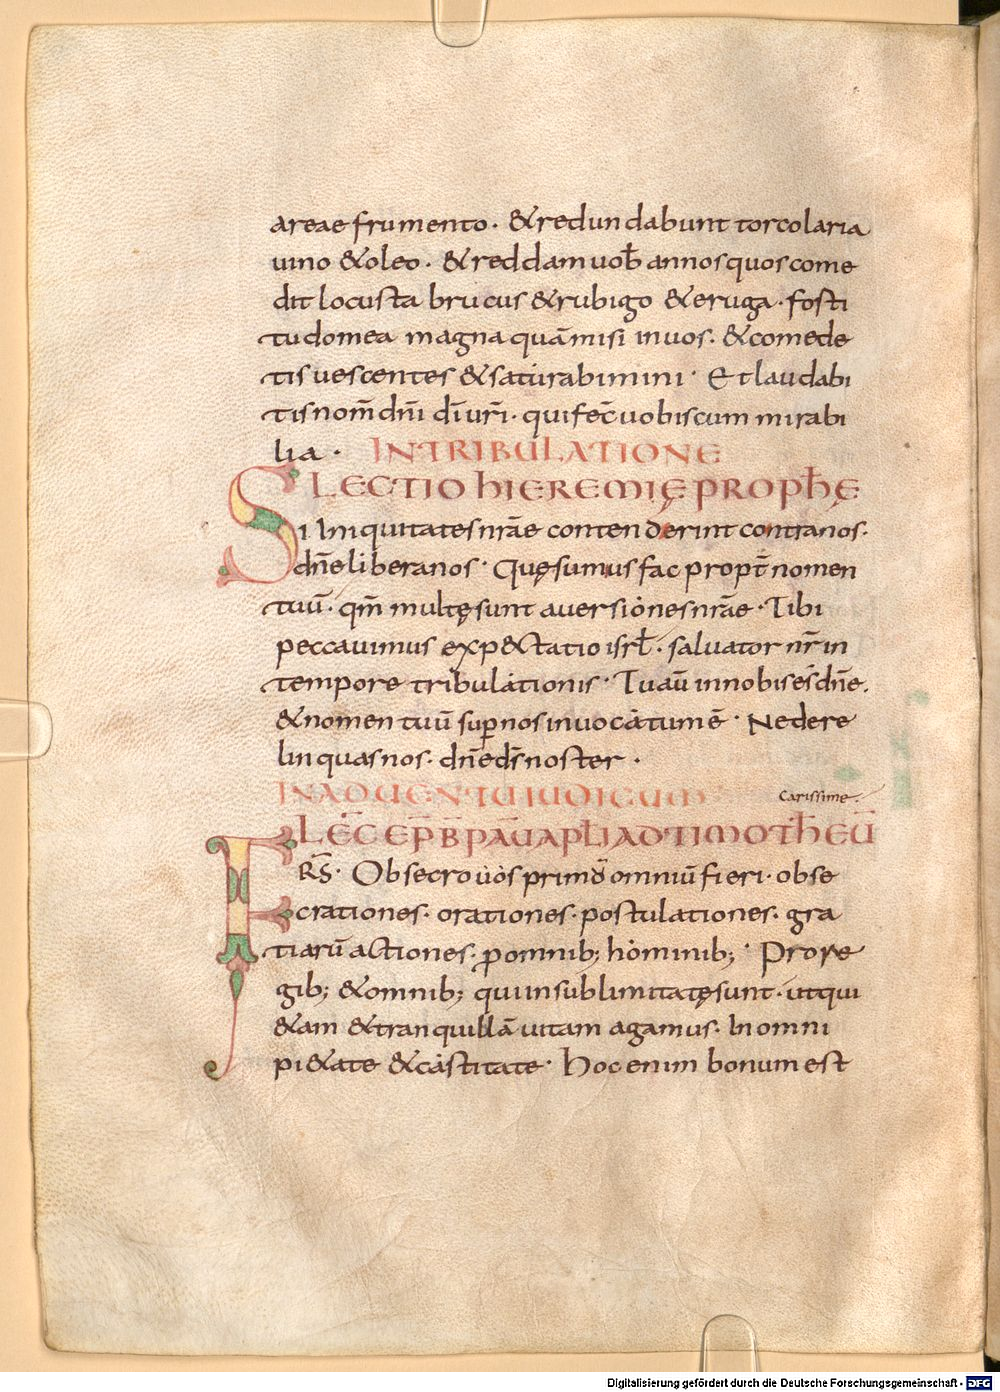 areae frumento · & redundabunt torcolaria
uino & oleo · & reddam uob̄ annos quos come
dit locusta brucus & rubigo & eruga · forti
tudo mea magna quā misi in uos · & comede
tis uescentes & saturabimini · Et laudabi
tis nom̄ dn̄i dī ur̄i · qui fec̄ uobiscum mirabi
lia · IN TRIBULATIONE
LECTIO HIEREMIĘ PROPħE
Si Iniquitates nr̄ae contenderint contra nos ·
dn̄e libera nos · Quęsumus fac propt̄ nomen
tuū · qm̄ multę sunt auersiones nr̄ae · Tibi
peccauimus exp&ctatio isrl̄ · saluator nr̄ in
tempore tribulationis · Tu aū in nobis es dn̄e ·
& nomen tuū sup nos inuocatum ē · Ne dere
linquas nos · dn̄e ds̄ noster ·
IN ADUENTU IUDICUM carissime ·
LEC̄ EP̄ B̄ PAU APŁI AD TIMOTHEŪ
FRS̄ · Obsecro uos primō omniū fieri · obse
crationes · orationes · postulationes · gra
tiarū actiones · ꝓ omnib; hominib; · Pro re
gib; & omnib; qui in sublimitatę sunt · ut qui
&am & tranquillā uitam agamus · In omni
pi&ate & castitate · Hoc enim bonum est
Digitalisierung gefördert durch die Deutsche Forschungsgemeinschaft - DFG